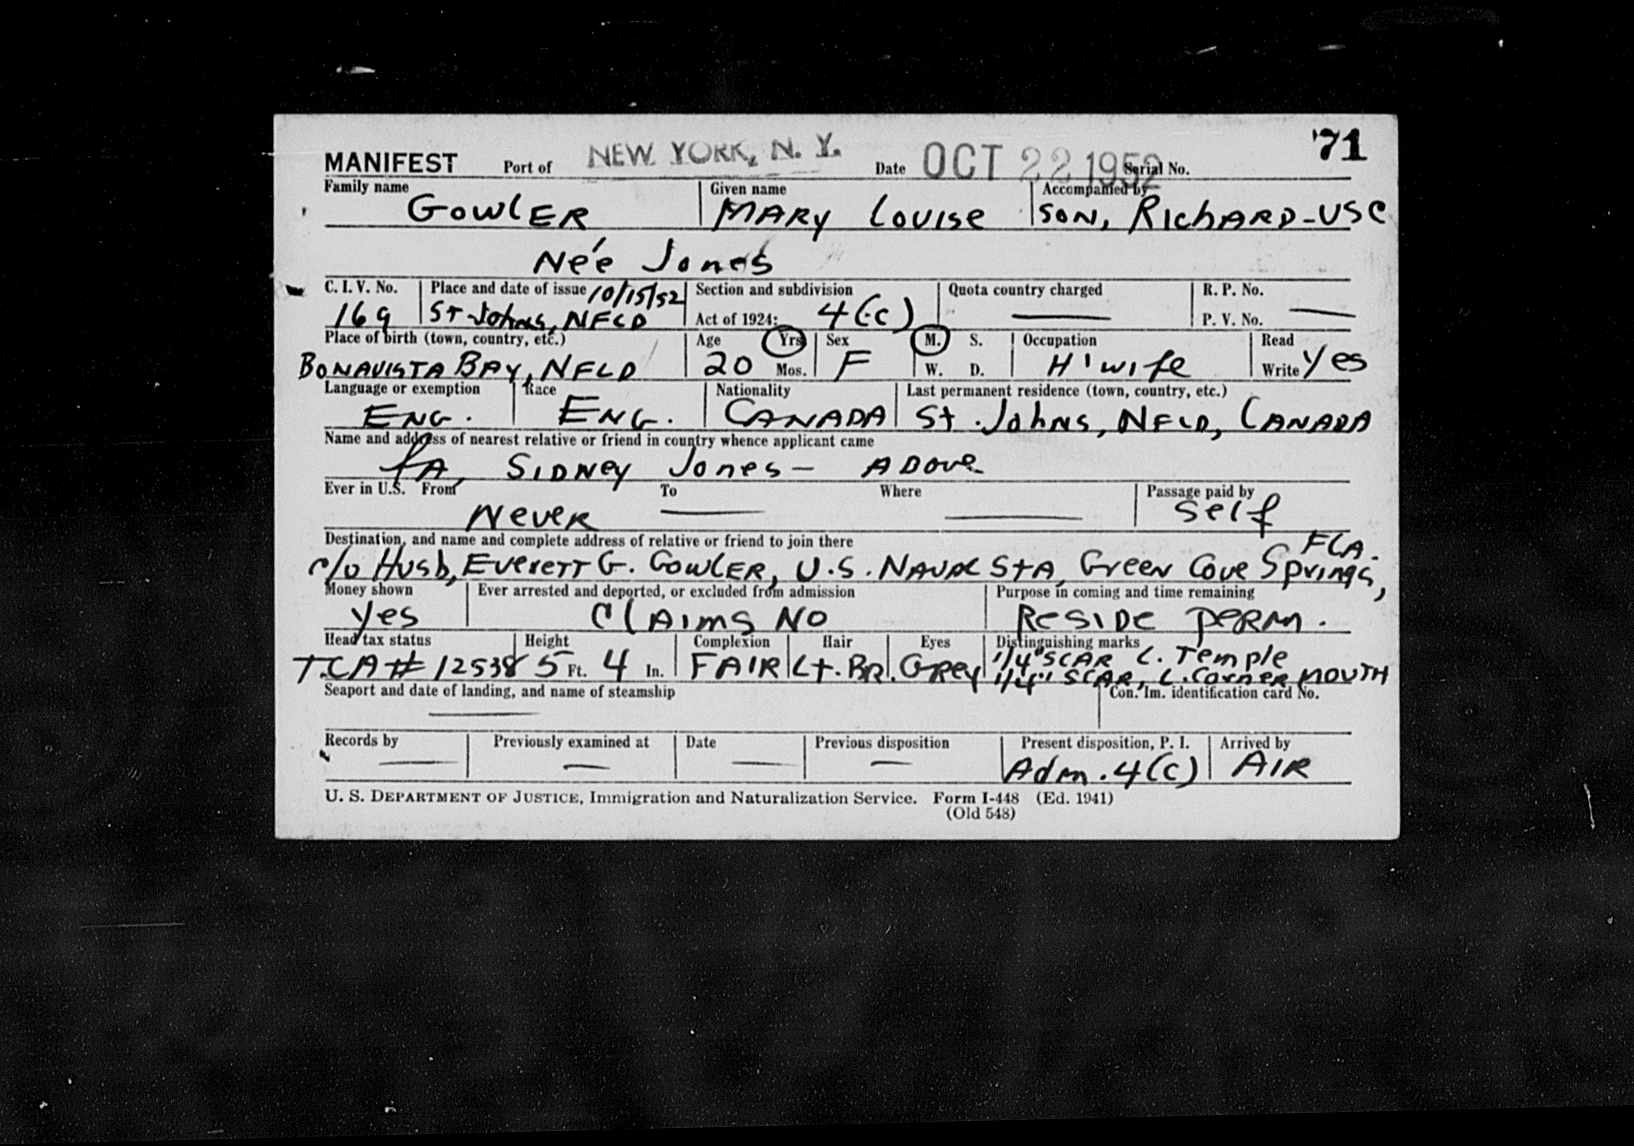 '71
MANIFEST Port of NEW YORK, N. Y. Date OCT 22 1952 Serial No.
Family name Given name Accompanied by
GOWLER MARY LOUISE SON, RICHARD-USC
Née Jones
C. I. V. No. Place and date of issue 10/15/52 Section and subdivision Quota country charged R. P. No.
169 ST Johns, NFLD Act of 1924: 4(c) P. V. No.
Place of birth (town, country, etc.) Age Yrs Sex M. S. Occupation Read
BONAVISTA BAY, NFLD 20 Mos. F W. D. H'wife Write Yes
Language or exemption Race Nationality Last permanent residence (town, country, etc.)
ENG. ENG. CANADA St. Johns, NFLD, CANADA
Name and address of nearest relative or friend in country whence applicant came
fA, SIDNEY Jones - ABOVE
Ever in U.S. From To Where Passage paid by
Never Self
Destination, and name and complete address of relative or friend to join there FLA.
c/o Husb, EVERETT G. GOWLER, U.S. NAVAL STA, Green Cove Springs,
Money shown Ever arrested and deported, or excluded from admission Purpose in coming and time remaining
Yes CLAIMS NO RESIDE PERM.
Head tax status Height Complexion Hair Eyes Distinguishing marks
T.CA# 12538 5 Ft. 4 In. FAIR Lt. BR. GREY 1/4" SCAR L. Temple
1/4" SCAR, L. CORNER MOUTH
Seaport and date of landing, and name of steamship Con. Im. identification card No.
Records by Previously examined at Date Previous disposition Present disposition, P. I. Arrived by
Adm. 4(c) AIR
U. S. DEPARTMENT OF JUSTICE, Immigration and Naturalization Service. Form I-448 (Ed. 1941)
(Old 548)